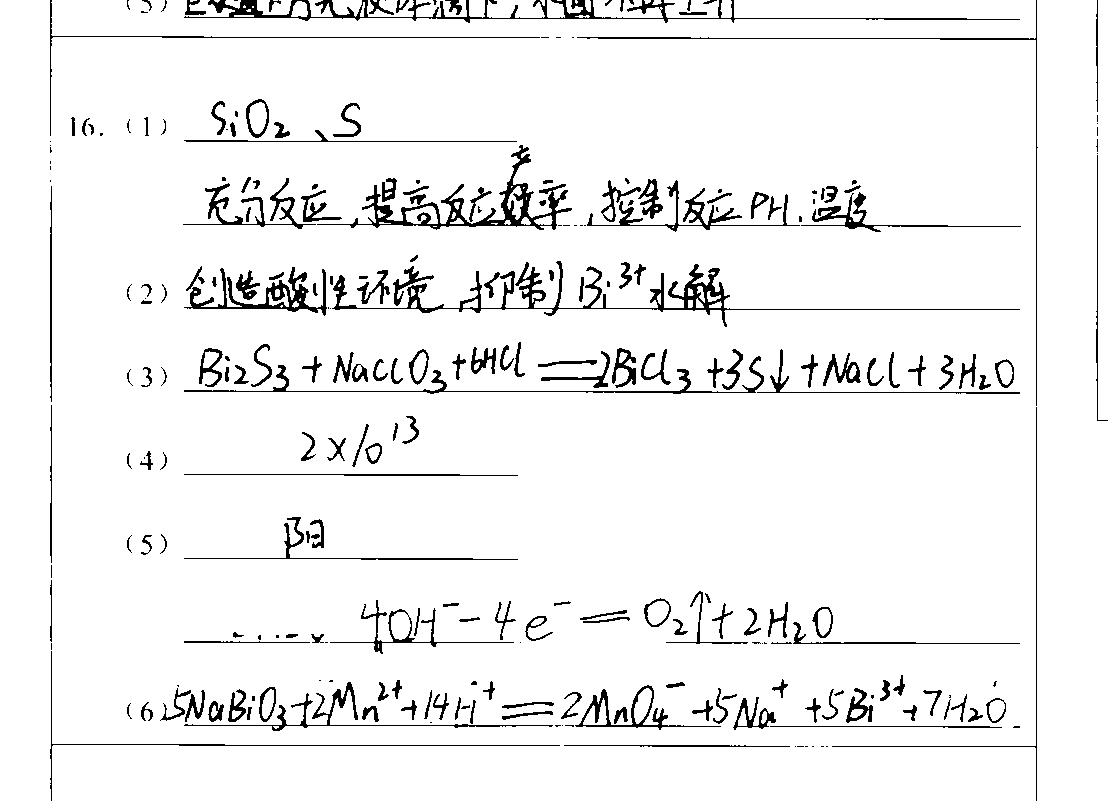 16. (1) SiO₂、S
充分反应,提高反应产率,控制反应PH、温度
(2) 创造酸性环境,抑制Bi³⁺水解
(3) Bi₂S₃+NaClO₃+6HCl=2BiCl₃+3S↓+NaCl+3H₂O
(4) 2×10¹³
(5) 阳
4OH⁻-4e⁻=O₂↑+2H₂O
(6) 5NaBiO₃+2Mn²⁺+14H⁺=2MnO₄⁻+5Na⁺+5Bi³⁺+7H₂O